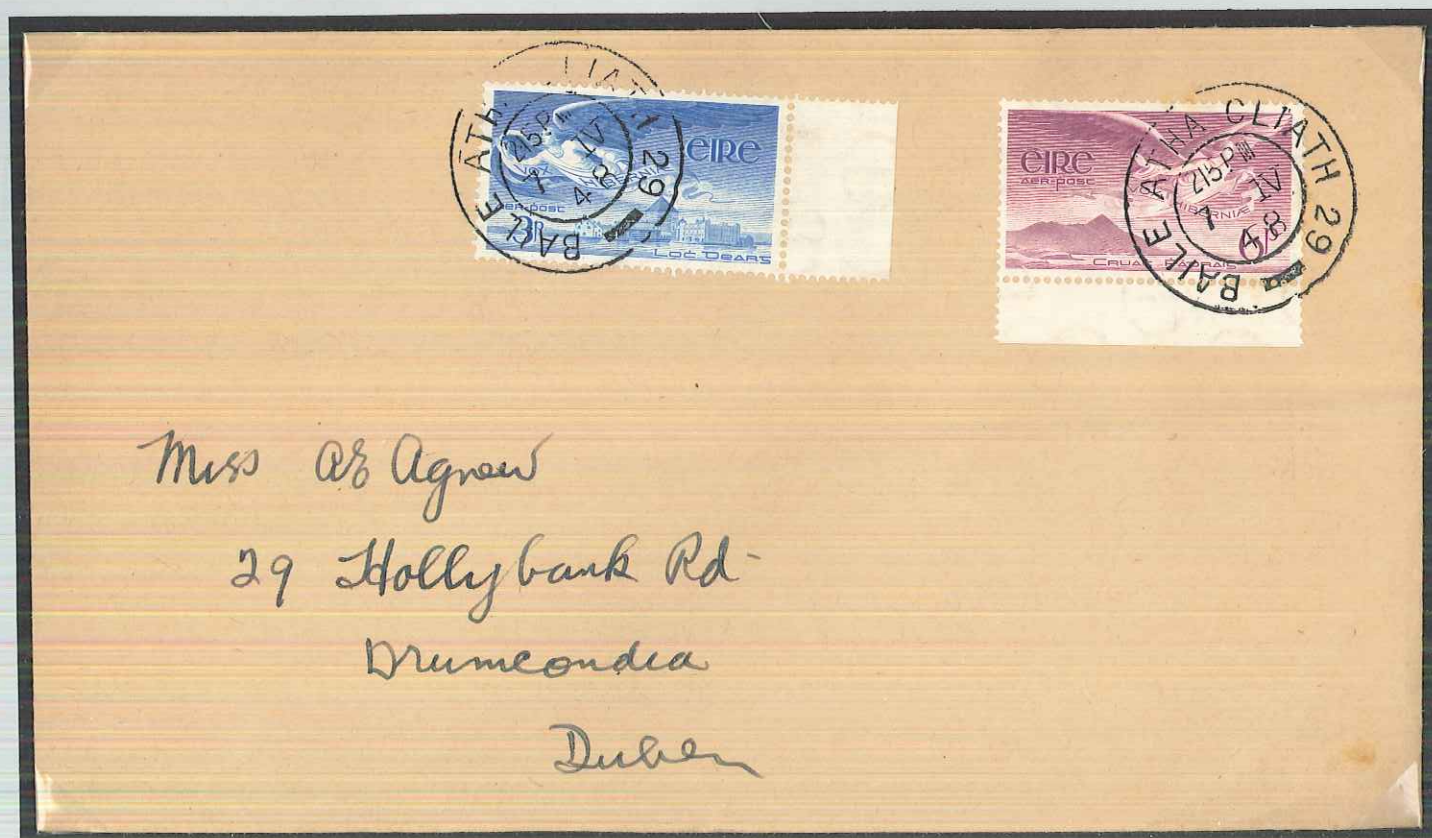 BAILE ÁTH LIATH 29
215 PM
7 IV
48
EIRE
VOX HIBERNIÆ
AER-POST
3P
LOC DEARG
BAILE ATHA CLIATH 29
215 PM
7 IV
48
EIRE
AER-POST
HIBERNIÆ
6P
CRUAC PATRAIS
Miss AE Agnew
29 Hollybank Rd
Drumcondra
Dublin